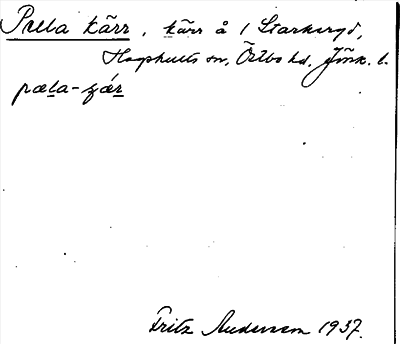 Pella kärr, kärr å 1 Starkeryd,
Hagshults sn, Östbo hd, Jönk. l.
pæla-çǽr
Fritz Andersson 1937.